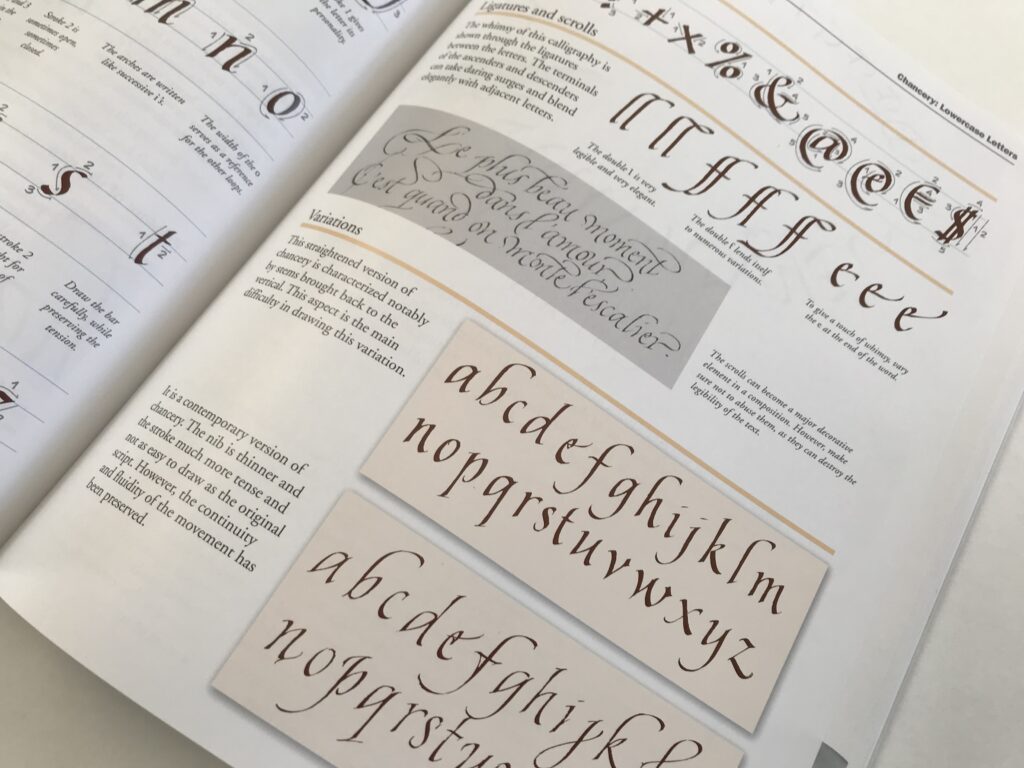 Stroke 2 is
sometimes open,
sometimes
closed.
The arches are written
like successive i's.
the letter its
personality.
m
n
o
The width of the o
serves as a reference
for the other loops.
s
t
Draw the bar
carefully, while
preserving the
tension.
Chancery: Lowercase Letters
Ligatures and scrolls
The whimsy of this calligraphy is
shown through the ligatures
between the letters. The terminals
of the ascenders and descenders
can take daring surges and blend
elegantly with adjacent letters.
+ x % & @ € $
ll ll ff ff ff
The double l is very
legible and very elegant.
The double f lends itself
to numerous variations.
e e e
To give a touch of whimsy, vary
the e at the end of the word.
Le plus beau moment
dans l'amour
C'est quand on monte l'escalier.
The scrolls can become a major decorative
element in a composition. However, make
sure not to abuse them, as they can destroy the
legibility of the text.
Variations
This straightened version of
chancery is characterized notably
by stems brought back to the
vertical. This aspect is the main
difficulty in drawing this variation.
abcdefghijklm
nopqrstuvwxyz
It is a contemporary version of
chancery. The nib is thinner and
the stroke much more tense and
not as easy to draw as the original
script. However, the continuity
and fluidity of the movement has
been preserved.
abcdefghijkl
nopqrstu